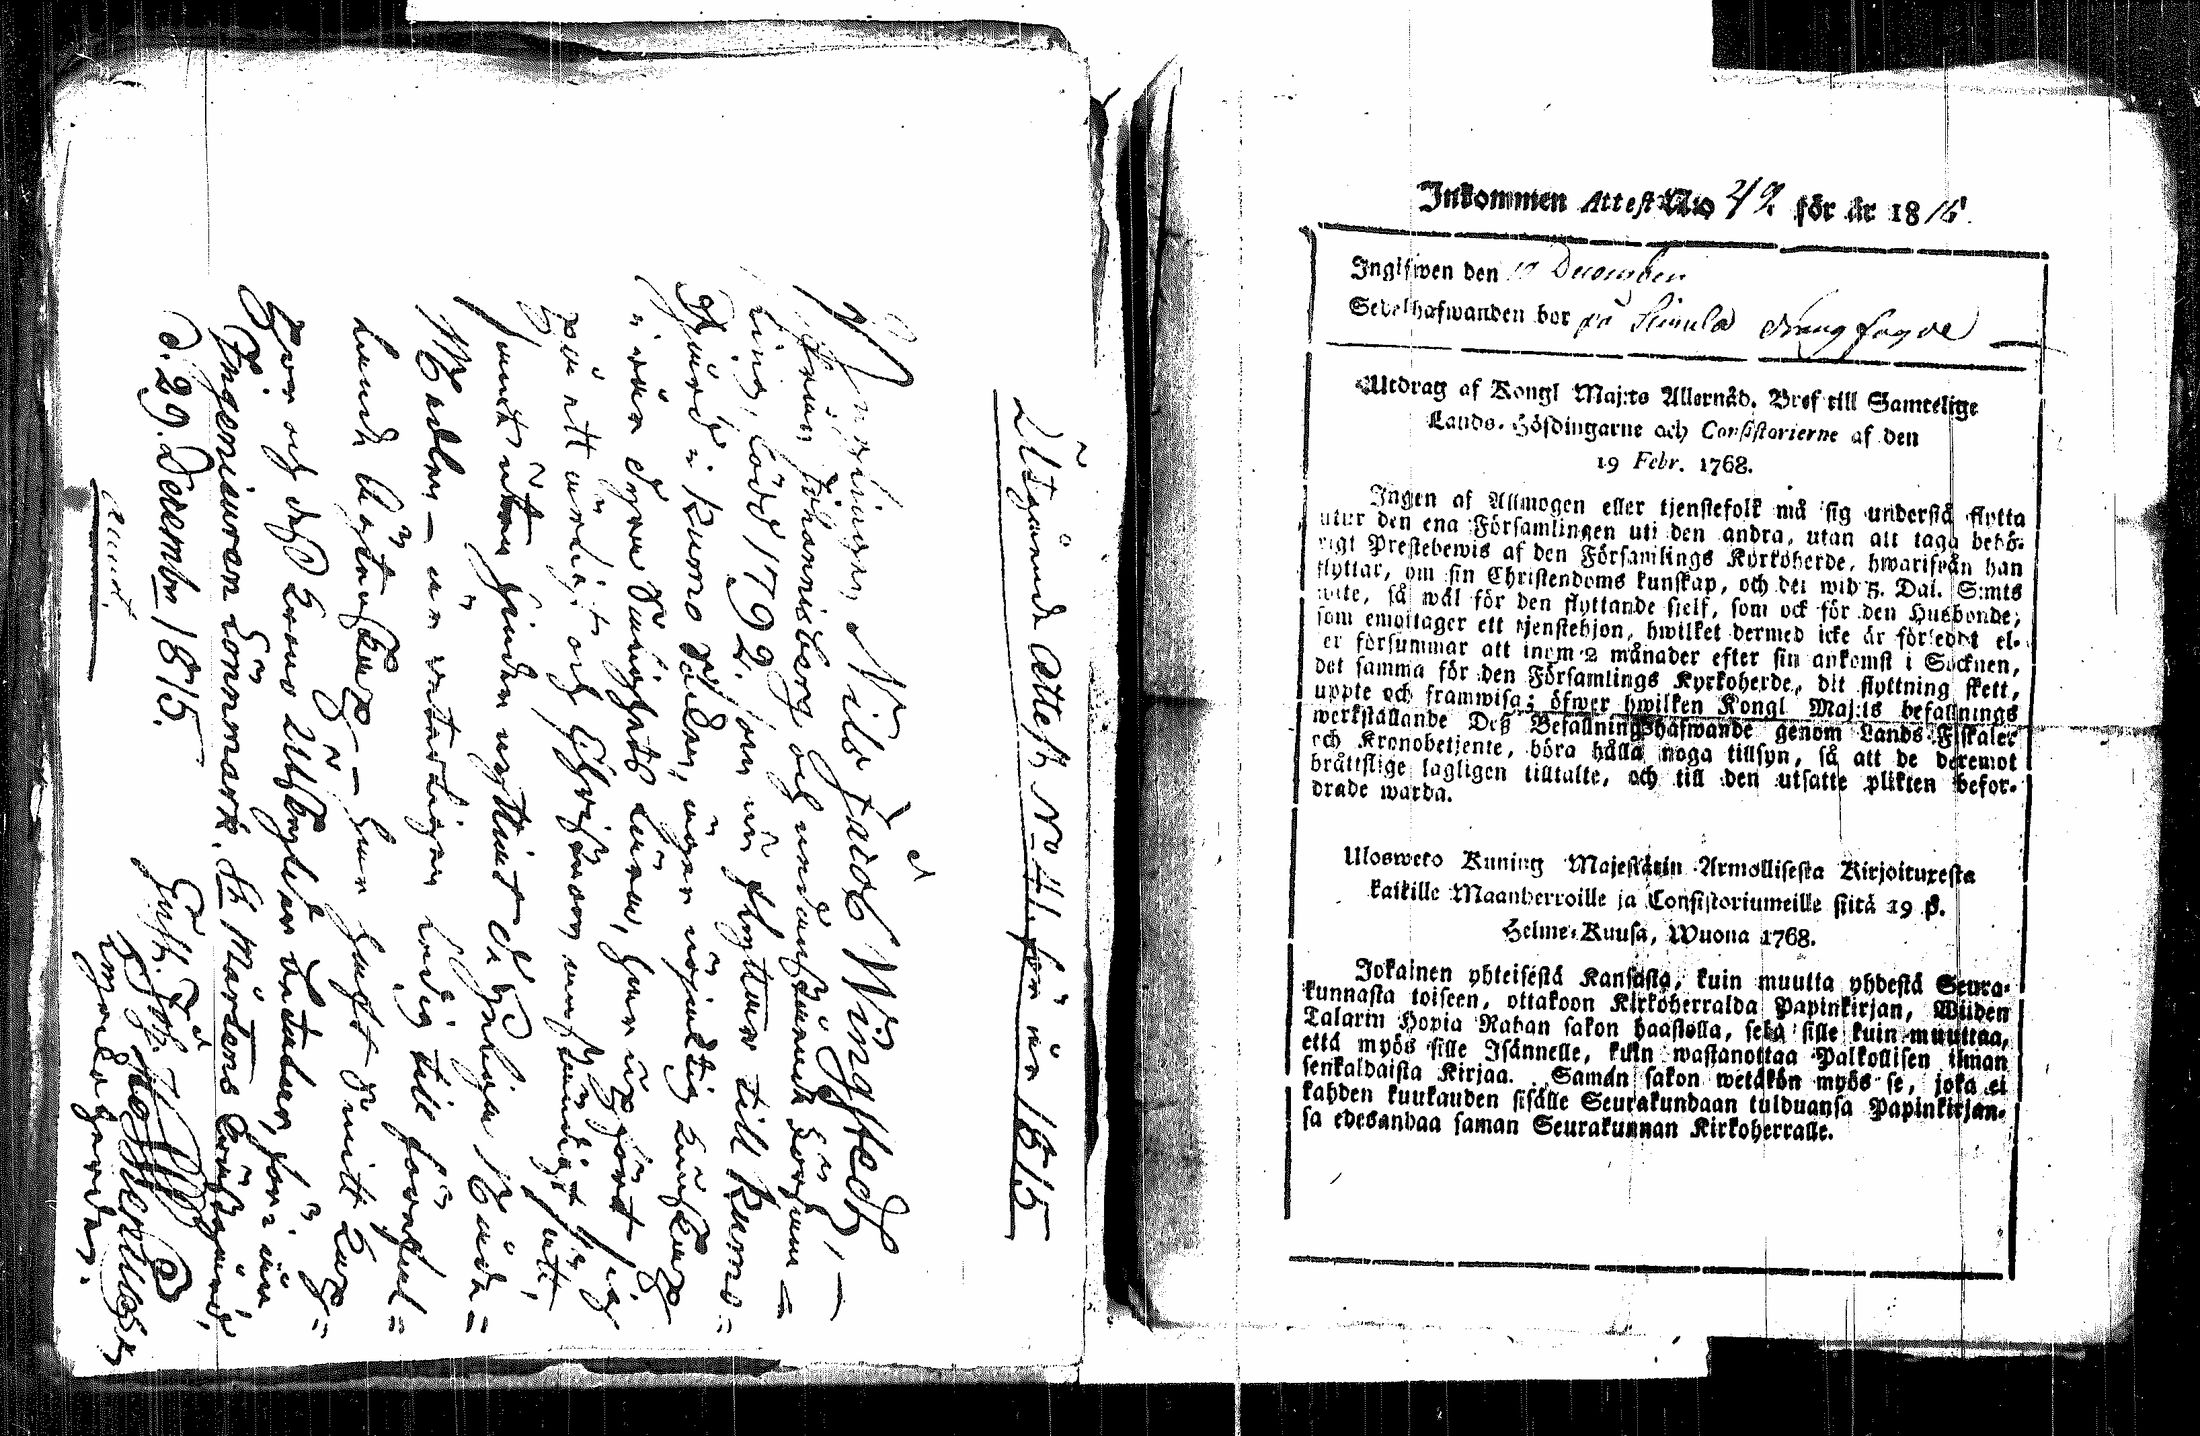 Utgående Attest N:o 41. för år 1815
Ynglingen Nils Jacob Wingstedt, —
från Johannisberg och
ning, född 1792. som nu flyttar till Kumo=
Gård i Kumo Socken, äger nöjaktig kunskap
i vår dyra Salighets Lära, har uppfört sig
på ett ärligt och Christnom anständigt sätt,
samt utan hinder nyttjat de dyra Nåde=
Medlen — är veterligen ledig till förehaf=
hande Ägtenskap — har haft Smitt Kop=
por och dess Krono Utskylder betalar, för i år
Ingenieuren Lönnmark. S:t Mårtens
d. 29. December 1815.
Inkommen Attest N:o 42 för år 1816
Ingifwen den December
Sedelhafwanden bor på
Utdrag af Kongl Maj:ts Allernåd. Bref till Samtelige
Lands-Höfdingarne och Consistorierne af den
19 Febr. 1768.
Ingen af Allmogen eller tjenstefolk må sig understå flytta
utur den ena Församlingen uti den andra, utan att taga behö-
rigt Prestebewis af den Församlings Kyrkoherde, hwarifrån han
flyttar, om sin Christendoms kunskap, och det wid 5. Dal. S:mts
wite, så wäl för den flyttande sielf, som ock för den Husbonde,
som emottager ett tjenstehjon, hwilket dermed icke är försedt el-
er försummar att inom 2 månader efter sin ankomst i Socknen,
det samma för den Församlings Kyrkoherde, dit flyttning skett,
uppte och framwisa; öfwer hwilken Kongl Maj:ts befallnings
werkställande Deß Befallningshafwande genom Lands-Fiskaler
och Kronobetjente, böra hålla noga tillsyn, så att de deremot
bråttslige lagligen tilltalte, och till den utsatte plikten befor-
drade warda.
Ulosweto Kuning Majestätin Armollisesta Kirjoituxesta
kaikille Maanherroille ja Consistoriumeille siitä 19 p.
Helme-Kuusa, Wuona 1768.
Jokainen yhteisestä Kansasta, kuin muutta yhdestä Seura-
kunnasta toiseen, ottakoon Kirkoherralda Papinkirjan, Wiiden
Talarin Hopia Rahan sakon haastolla, sekä sille kuin muuttaa,
että myös sille Isännelle, kuin wastanottaa Palkollisen ilman
senkaldaista Kirjaa. Samän sakon wetäkön myös se, joka ei
kahden kuukauden sisälle Seurakundaan tulduansa Papinkirjan-
sa edesandaa saman Seurakunnan Kirkoherralle.